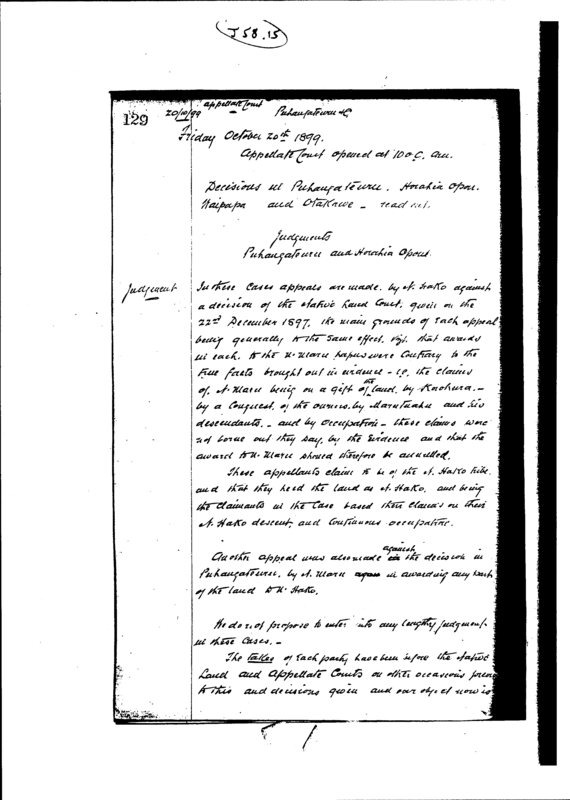 J 58.15
129
20/10/99
Appellate Court
Puhangateuru &c
Friday October 20th 1899.
Appellate Court opened at 10 o'c. am.
Decisions in Puhangateuru. Horahia Opou.
Waipapa and Otakawe - read out.
Judgments
Puhangateuru and Horahia Opou.
Judgment
In these cases appeals are made by N. Hako against
a decision of the Native Land Court, given on the
22nd December 1897, the main grounds of each appeal
being generally to the same effect, viz. that awards
in each, to the N. Maru hapus were contrary to the
true facts brought out in evidence - i.e. the claims
of N. Maru being on a gift of the land, by -
by a conquest, of the owners, by Marutuahu and his
descendants, - and by occupation - these claims were
not borne out they say, by the evidence and that the
award to N. Maru should therefore be annulled.
These appellants claim to be of the N. Hako tribe,
and that they held the land as N. Hako, and being
the claimants in the case based their claims on their
N. Hako descent, and continuous occupation.
Another appeal was also made against the decision in
Puhangateuru, by N. Maru in awarding any part
of the land to N. Hako.
We do not propose to enter into any lengthy judgment
in these cases. -
The takes of each party have been before the Native
Land and Appellate Courts on other occasions
to this and decisions given and our object now is